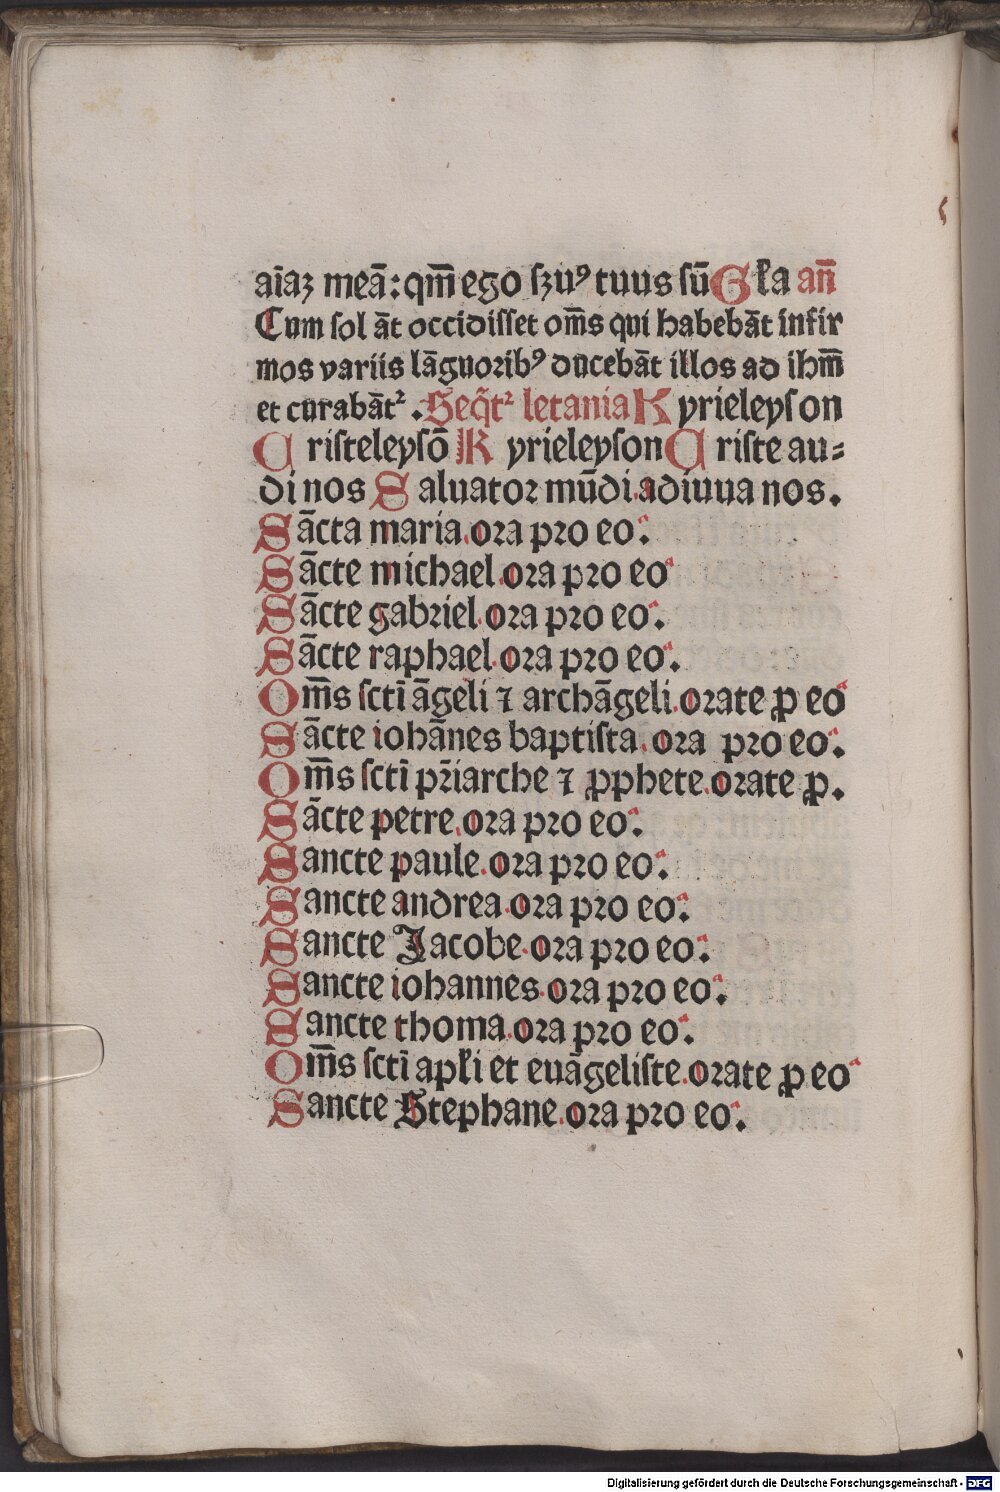 aīaꝫ meā: qm̄ ego ſꝫuꝰ tuus ſū Gƚa an̄
Cum ſol āt occidiſſet om̄s qui habebāt infir
mos variis lāguoribꝰ ducebāt illos ad ihm̄
et curabāt᷑. Seq̄t᷑ letania Kyrieleyſon
Criſteleyſō Kyrieleyſon Criſte au⸗
di nos Saluatoꝛ mūdi. adiuua nos.
Sācta maria. oꝛa pꝛo eo.
Sācte michael. oꝛa pꝛo eo
Sācte gabꝛiel. oꝛa pꝛo eo.
Sācte raphael. oꝛa pꝛo eo.
Om̄s ſctī āgeli ⁊ archāgeli. oꝛate ꝓ eo
Sācte iohānes baptiſta. oꝛa pꝛo eo.
Om̄s ſctī pr̄iarche ⁊ ꝓphete. oꝛate ꝓ.
Sācte petre. oꝛa pꝛo eo.
Sancte paule. oꝛa pꝛo eo.
Sancte andrea. oꝛa pꝛo eo.
Sancte Jacobe. oꝛa pꝛo eo.
Sancte iohannes. oꝛa pꝛo eo.
Sancte thoma. oꝛa pꝛo eo.
Om̄s ſctī apƚi et euāgeliſte. oꝛate ꝓ eo
Sancte Stephane. oꝛa pꝛo eo.
Digitalisierung gefördert durch die Deutsche Forschungsgemeinschaft - DFG